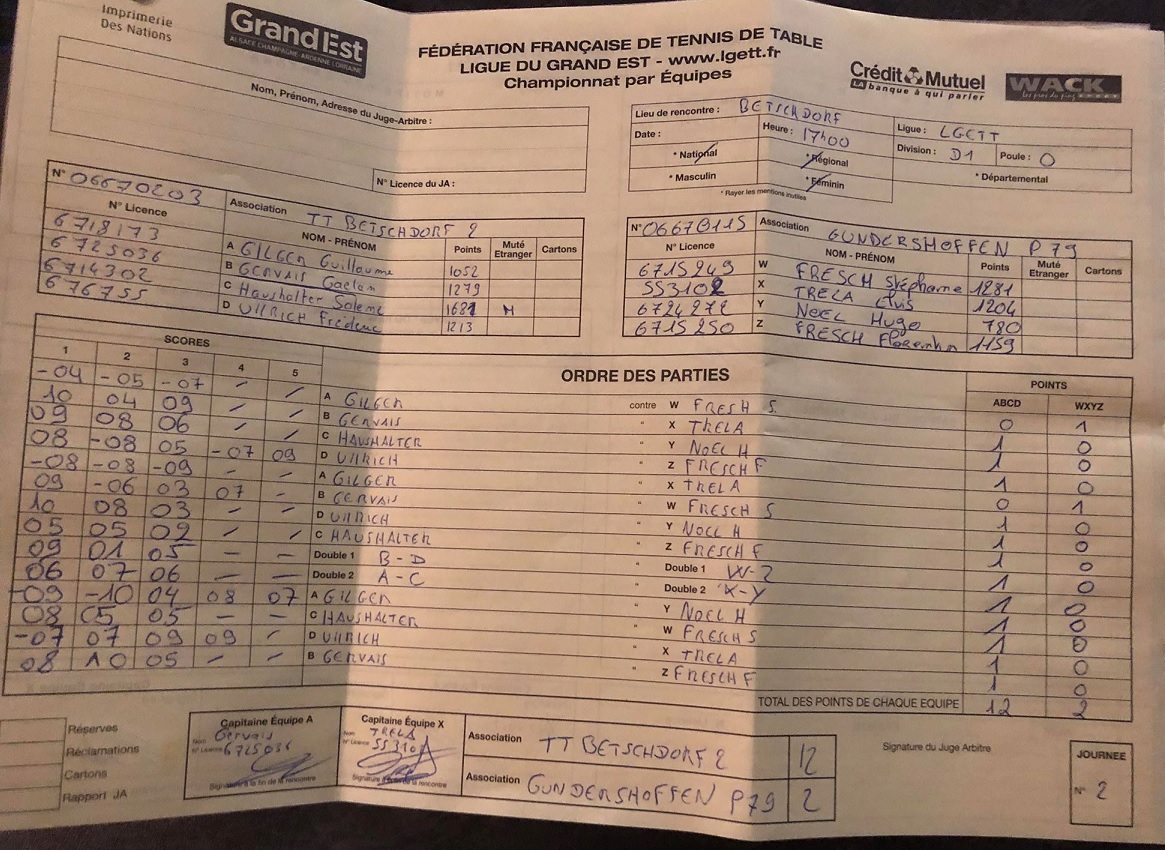 Imprimerie
Des Nations
GrandEst
ALSACE CHAMPAGNE-ARDENNE LORRAINE
FÉDÉRATION FRANÇAISE DE TENNIS DE TABLE
LIGUE DU GRAND EST - www.lgett.fr
Championnat par Équipes
Crédit Mutuel
LA banque à qui parler
WACK
Nom, Prénom, Adresse du Juge-Arbitre :
N° Licence du JA :
Lieu de rencontre : BETSCHDORF
Date : Heure : 17h00
Ligue : LGETT
Division : D1 Poule : O
* National * Régional * Départemental
* Masculin * Féminin
* Rayer les mentions inutiles
N° 06670203 Association TT BETSCHDORF 2
N° Licence NOM - PRÉNOM Points Muté Etranger Cartons
6718173 A GILGER Guillaume 1052
6725036 B GERVAIS Gaetan 1279
6714302 C Haushalter Solene 1631 M
676755 D Ullrich Fréderic 1213
N° 06670115 Association GUNDERSHOFFEN P 79
N° Licence NOM - PRÉNOM Points Muté Etranger Cartons
6715249 W FRESCH Stéphane 1281
553102 X TRELA 1204
6724272 Y NOEL Hugo 780
6715250 Z FRESCH Florentin 1159
SCORES
1 2 3 4 5
ORDRE DES PARTIES
POINTS
ABCD WXYZ
-04 -05 -07 / / A GILGER contre W FRESH S 0 1
10 04 09 / / B GERVAIS " X TRELA 1 0
09 08 06 / / C HAUSHALTER " Y NOEL H 1 0
08 -08 05 -07 09 D ULLRICH " Z FRESCH F 1 0
-08 -08 -09 - - A GILGER " X TRELA 0 1
09 -06 03 07 - B GERVAIS " W FRESCH S 1 0
10 08 03 / / D ULLRICH " Y NOEL H 1 0
05 05 09 / / C HAUSHALTER " Z FRESCH F 1 0
09 01 05 - - Double 1 B-D " Double 1 W-Z 1 0
06 07 06 - - Double 2 A-C " Double 2 X-Y 1 0
-09 -10 04 08 07 A GILGER " Y NOEL H 1 0
08 05 05 - - C HAUSHALTER " W FRESCH S 1 0
-07 07 09 09 / D ULLRICH " X TRELA 1 0
08 10 05 / / B GERVAIS " Z FRESCH F 1 0
TOTAL DES POINTS DE CHAQUE EQUIPE 12 2
Réserves
Réclamations
Cartons
Rapport JA
Capitaine Équipe A
Nom Gervais
N° Licence 6725036
Signature à la fin de la rencontre
Capitaine Équipe X
Nom TRELA
N° Licence
Signature à la fin de la rencontre
Association TT BETSCHDORF 2 12
Association GUNDERSHOFFEN P79 2
Signature du Juge Arbitre
JOURNEE
N° 2